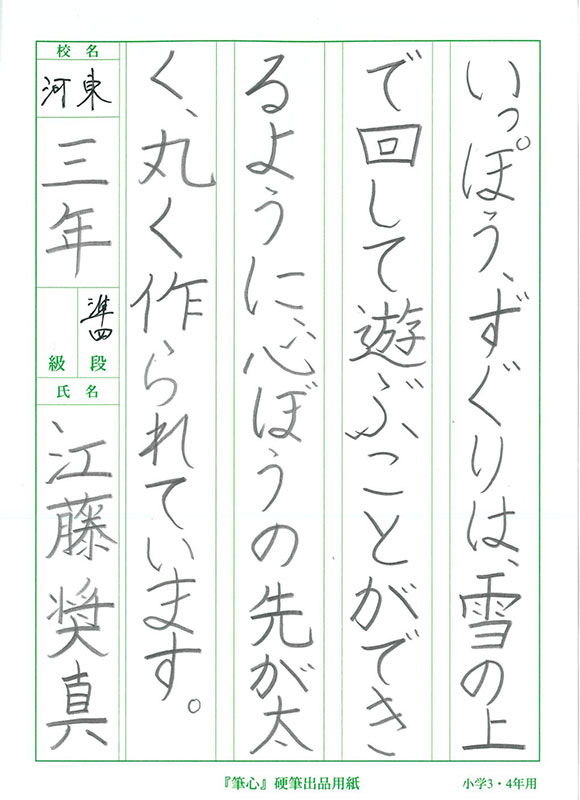 いっぽう、ずぐりは、雪の上
で回して遊ぶことができ
るように、心ぼうの先が太
く、丸く作られています。
校名
河東
三年
準四
段
級
氏名
江藤奨真
『筆心』硬筆出品用紙
小学3・4年用